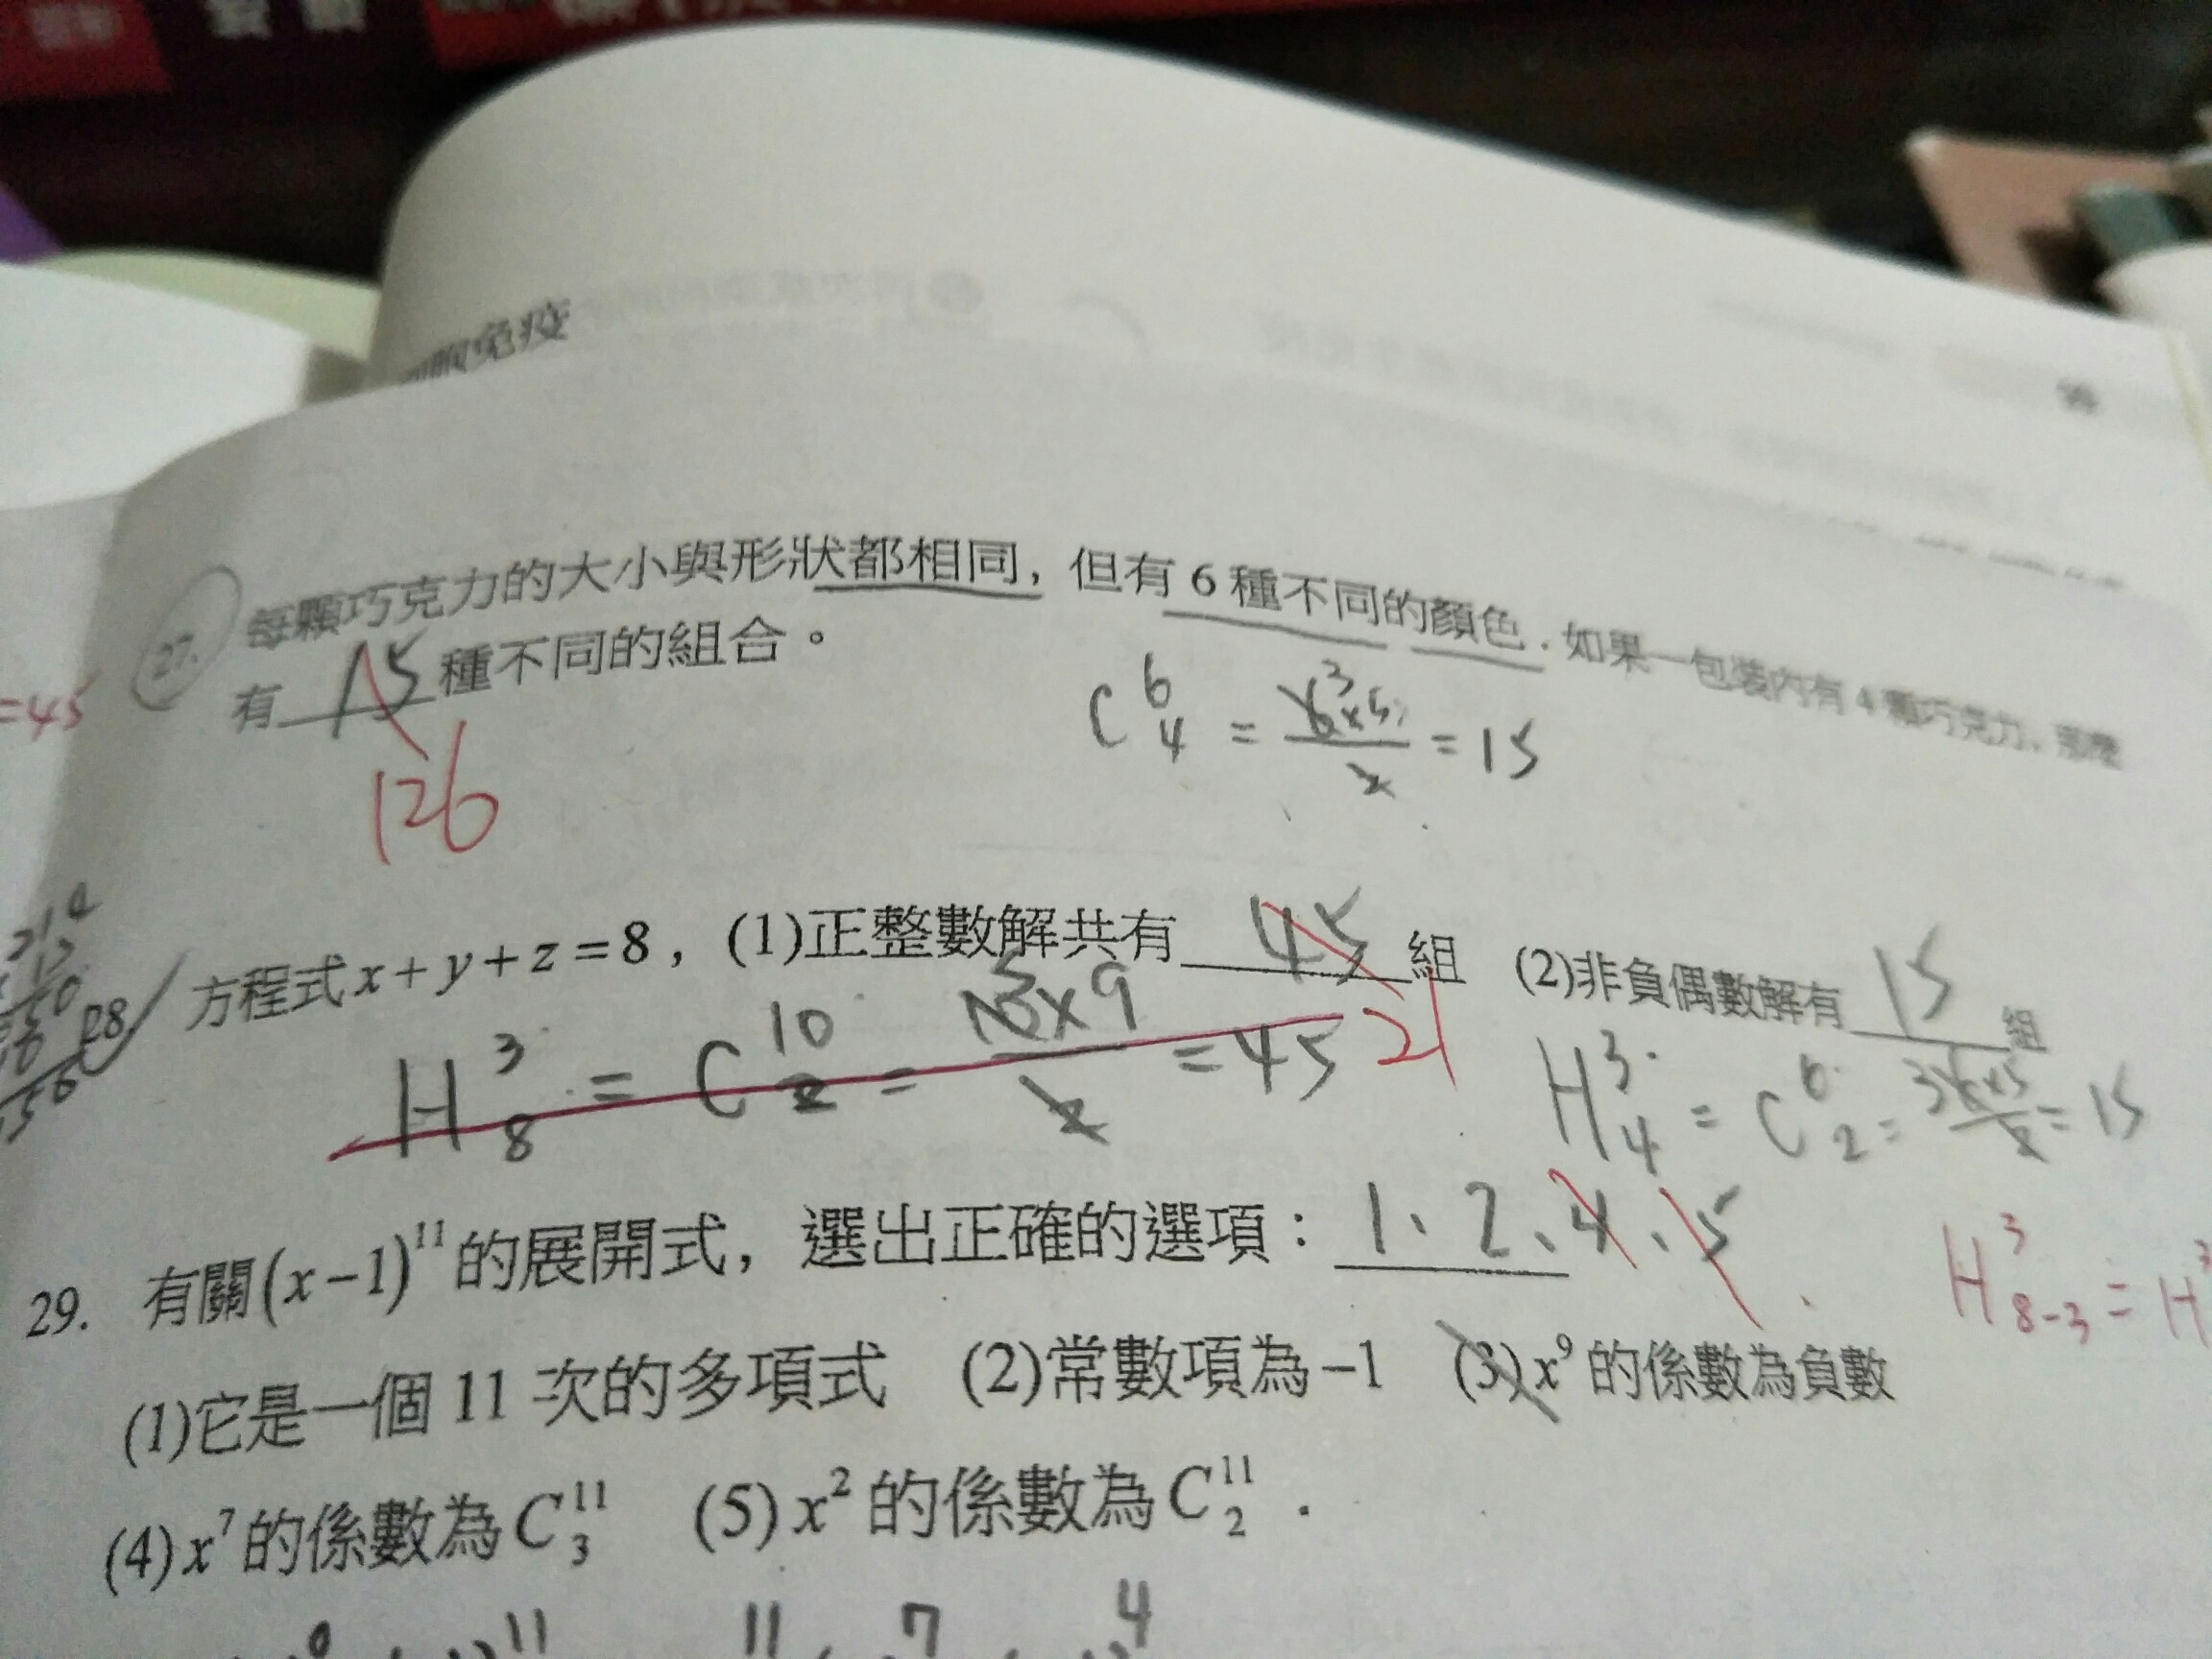 胞免疫
27. 每顆巧克力的大小與形狀都相同，但有 6 種不同的顏色．如果一包裝內有 4 顆巧克力，那麼
有 15 種不同的組合。
126
C⁶₄ = 6×5 / 2 = 15
=45
28 方程式 x + y + z = 8，(1)正整數解共有 45 組 (2)非負偶數解有 15 組
21
H³₈ = C¹⁰₂ = 10×9 / 2 = 45
H³₄ = C⁶₂ = 6×5 / 2 = 15
29. 有關(x−1)¹¹的展開式，選出正確的選項：1、2、4、5
H³₈₋₃ = H³
(1)它是一個 11 次的多項式 (2)常數項為 −1 (3) x⁹ 的係數為負數
(4) x⁷ 的係數為 C¹¹₃ (5) x² 的係數為 C¹¹₂．
11 11 7 4